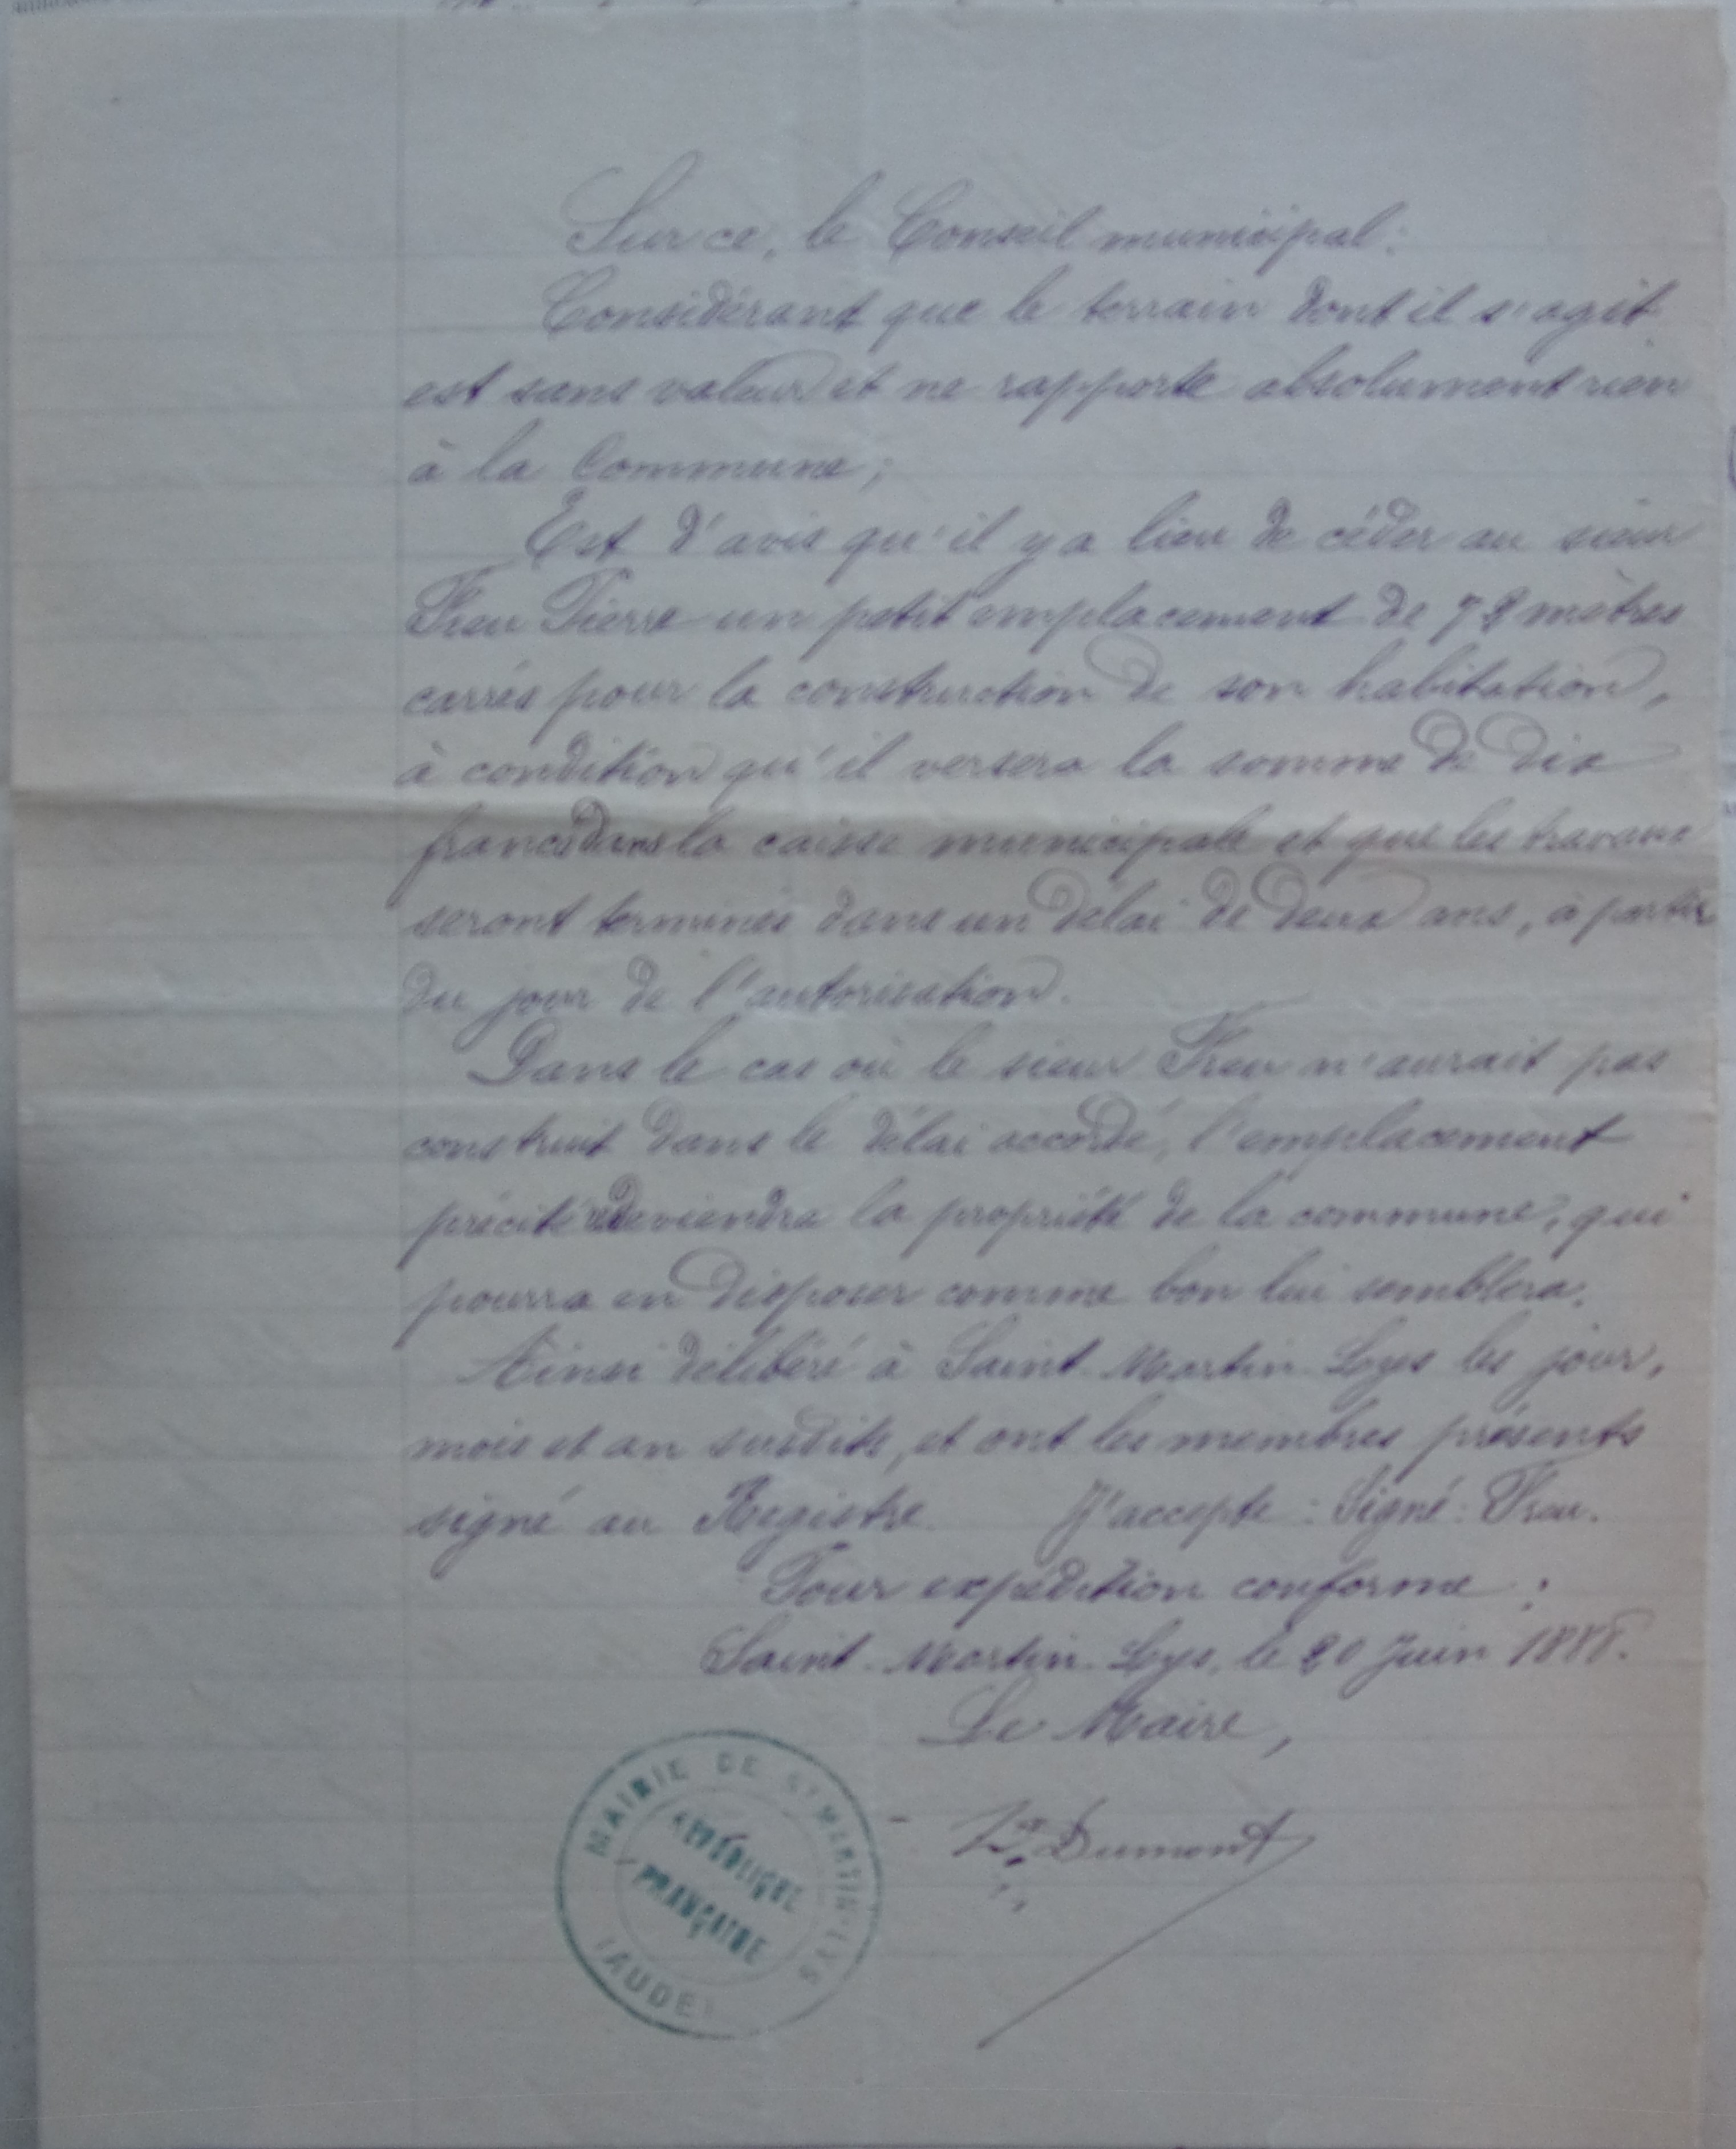 Sur ce, le Conseil municipal:
Considérant que le terrain dont il s'agit
est sans valeur et ne rapporte absolument rien
à la Commune;
Est d'avis qu'il y a lieu de céder au sieur
Pierre un petit emplacement de 72 mètres
carrés pour la construction de son habitation,
à condition qu'il versera la somme de dix
francs dans la caisse municipale et que les travaux
seront terminés dans un délai de deux ans, à partir
du jour de l'autorisation.
Dans le cas où le sieur n'aurait pas
construit dans le délai accordé, l'emplacement
précité redeviendra la propriété de la commune, qui
pourra en disposer comme bon lui semblera.
Ainsi délibéré à Saint-Martin-Lys les jour,
mois et an susdits, et ont les membres présents
signé au Registre. J'accepte: Signé:
Pour expédition conforme:
Saint-Martin-Lys, le 20 Juin 1888.
Le Maire,
Dumont
MAIRIE DE ST MARTIN-LYS
RÉPUBLIQUE
FRANÇAISE
(AUDE)